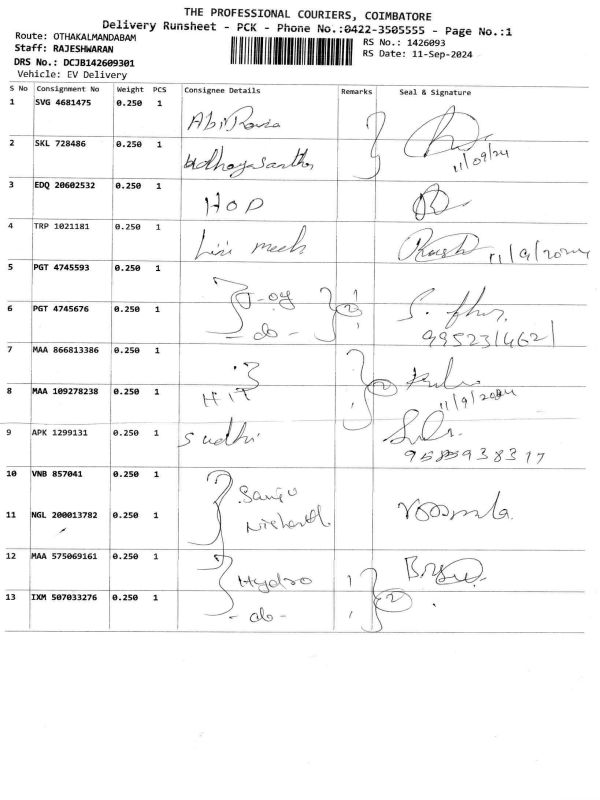 THE PROFESSIONAL COURIERS, COIMBATORE
Delivery Runsheet - PCK - Phone No.:0422-3505555 - Page No.:1
Route: OTHAKALMANDABAM
RS No.: 1426093
Staff: RAJESHWARAN
RS Date: 11-Sep-2024
DRS No.: DCJB142609301
Vehicle: EV Delivery
S No Consignment No Weight PCS Consignee Details Remarks Seal & Signature
1 SVG 4681475 0.250 1
2 SKL 728486 0.250 1 11/09/24
3 EDQ 20602532 0.250 1 HOD
4 TRP 1021181 0.250 1 11/9/2024
5 PGT 4745593 0.250 1 Joy
6 PGT 4745676 0.250 1 - do - 2
9952314621
7 MAA 866813386 0.250 1
8 MAA 109278238 0.250 1 HIT 2 11/9/2024
9 APK 1299131 0.250 1 Sudhi
10 VNB 857041 0.250 1 Sanju
11 NGL 200013782 0.250 1 Nishanth
12 MAA 575069161 0.250 1 Hydro
13 IXM 507033276 0.250 1 - do - 2